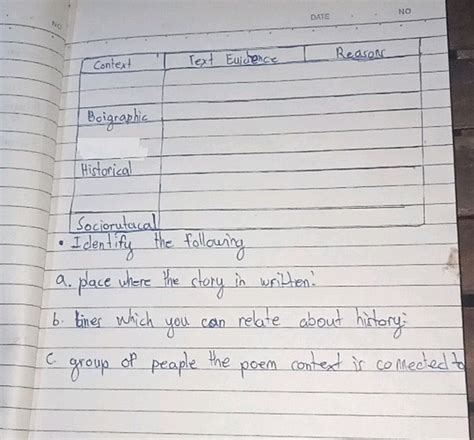 NO
DATE NO
Context Text Euidence Reasons
Boigraphic
Historical
Sociorutacal
• Identify the following
a. place where the story in written:
b. lines which you can relate about history:
c. group of peaple the poem context is connected to